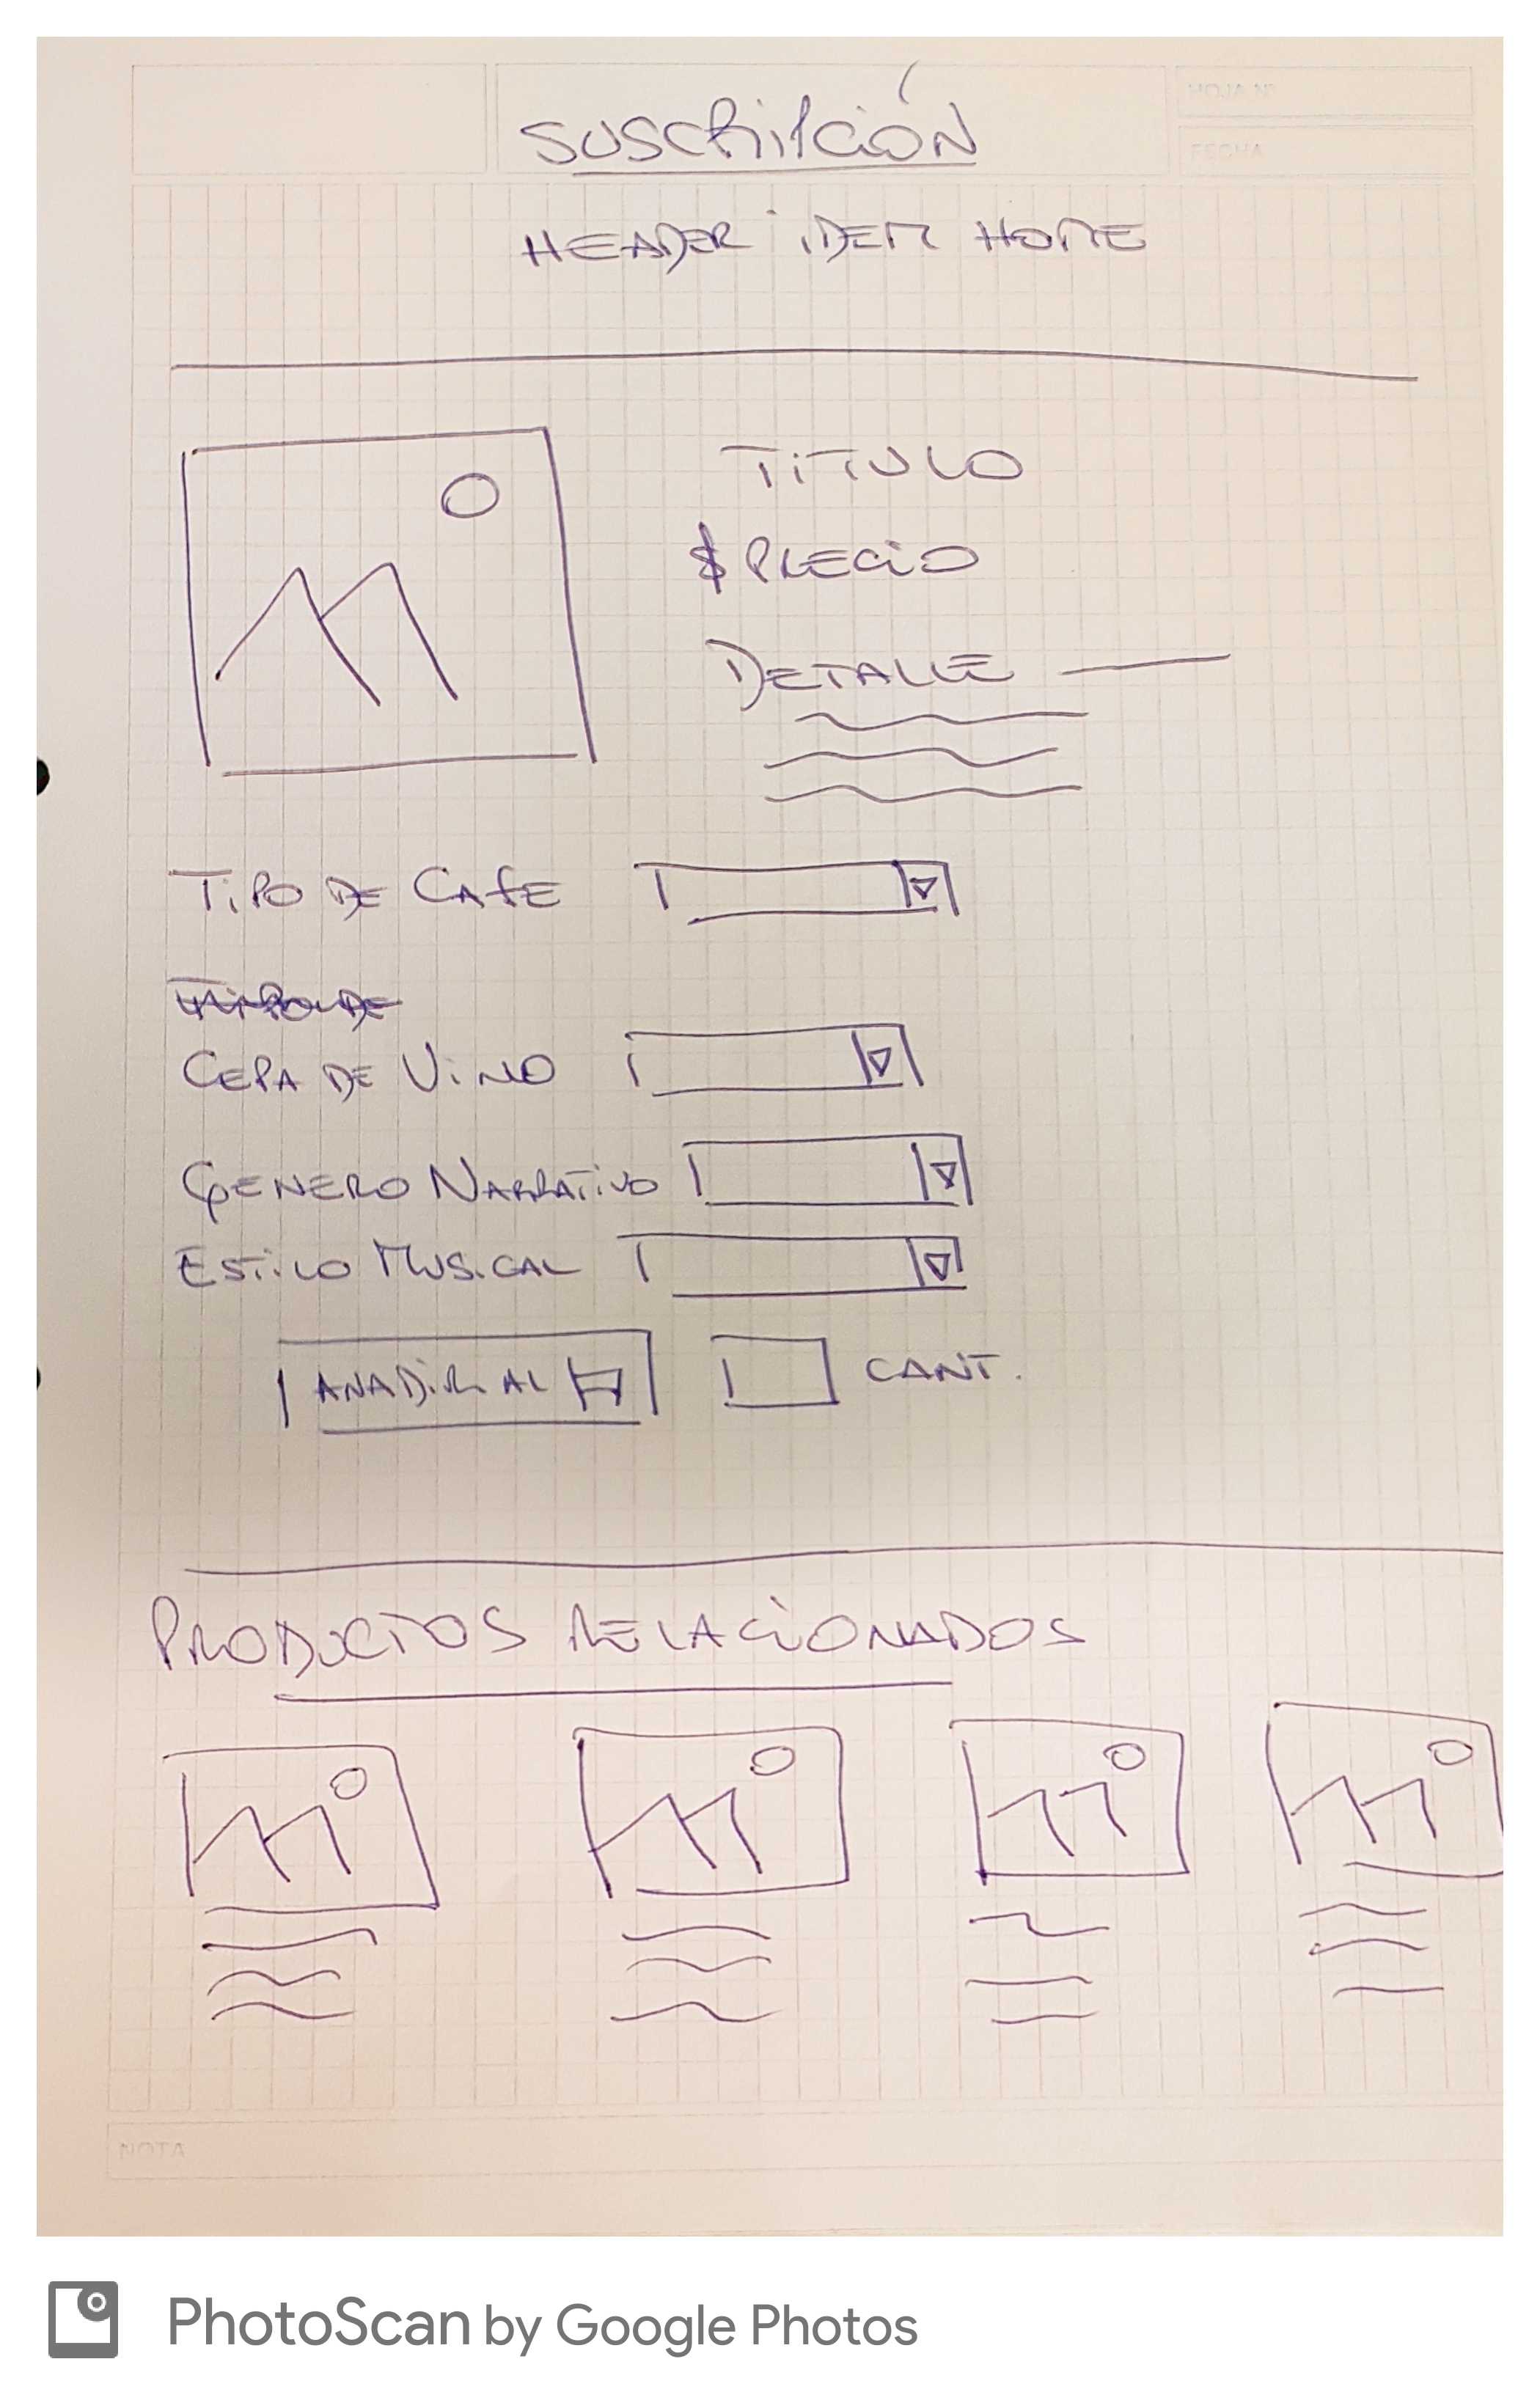 HOJA N°
SUSCRIPCIÓN
FECHA
HEADER IDEM HOME
TITULO
$ PRECIO
DETALLE
TIPO DE CAFE
TIPO DE
CEPA DE VINO
GENERO NARRATIVO
ESTILO MUSICAL
ANADIR AL
CANT.
PRODUCTOS RELACIONADOS
NOTA
PhotoScan by Google Photos